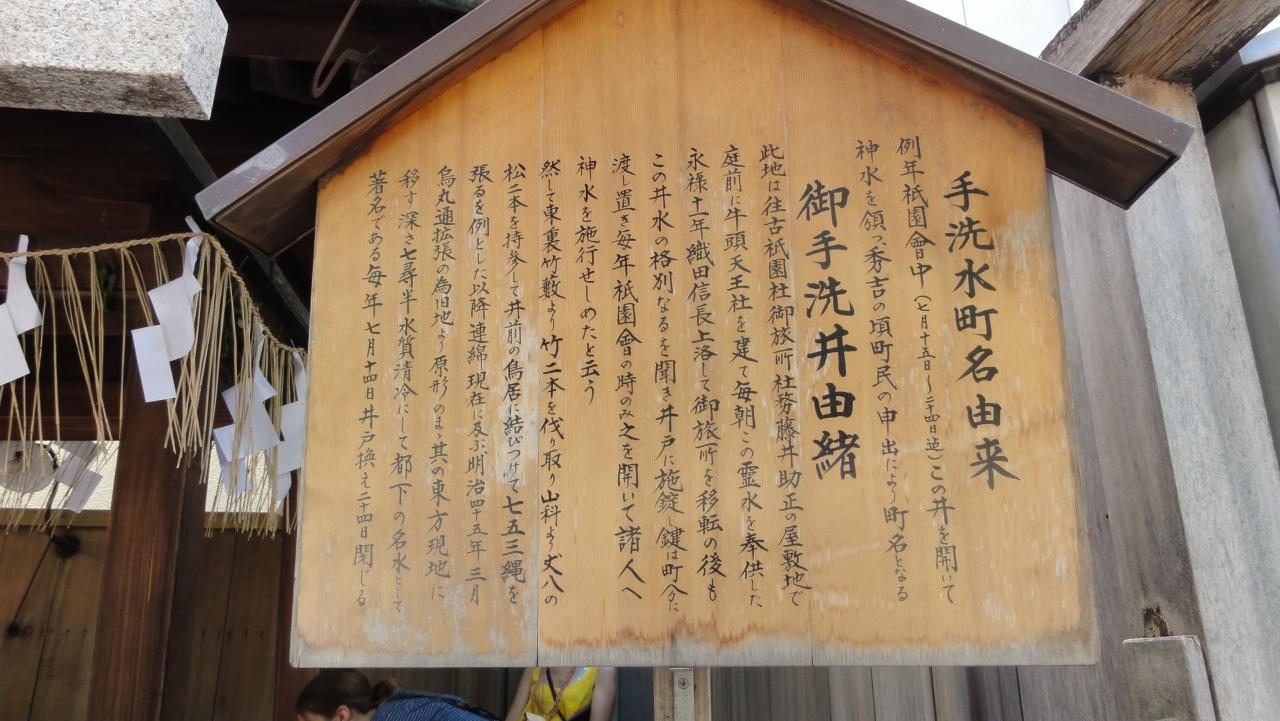 手洗水町名由来
例年祇園會中（七月十五日〜二十四日迄）この井を開いて
神水を頒つ秀吉の頃町民の申出により町名となる
御手洗井由緒
此地は往古祇園社御旅所社務藤井助正の屋敷地で
庭前に牛頭天王社を建て毎朝この霊水を奉供した
永禄十一年織田信長上洛して御旅所を移転の後も
この井水の格別なるを聞き井戸に施錠し鍵は町へ
渡し置き毎年祇園會の時のみ之を開いて諸人へ
神水を施行せしめたと云う
然して東裏竹藪より竹二本を伐り取り山科より丈八の
松二本を持参して井前の鳥居に結びつけて七五三縄を
張るを例とした以降連綿現在に及ぶ明治四十五年三月
烏丸通拡張の為旧地より原形のまゝ其の東方現地に
移す深さ七尋半水質清冷にして都下の名水として
著名である毎年七月十四日井戸換え二十四日閉じる